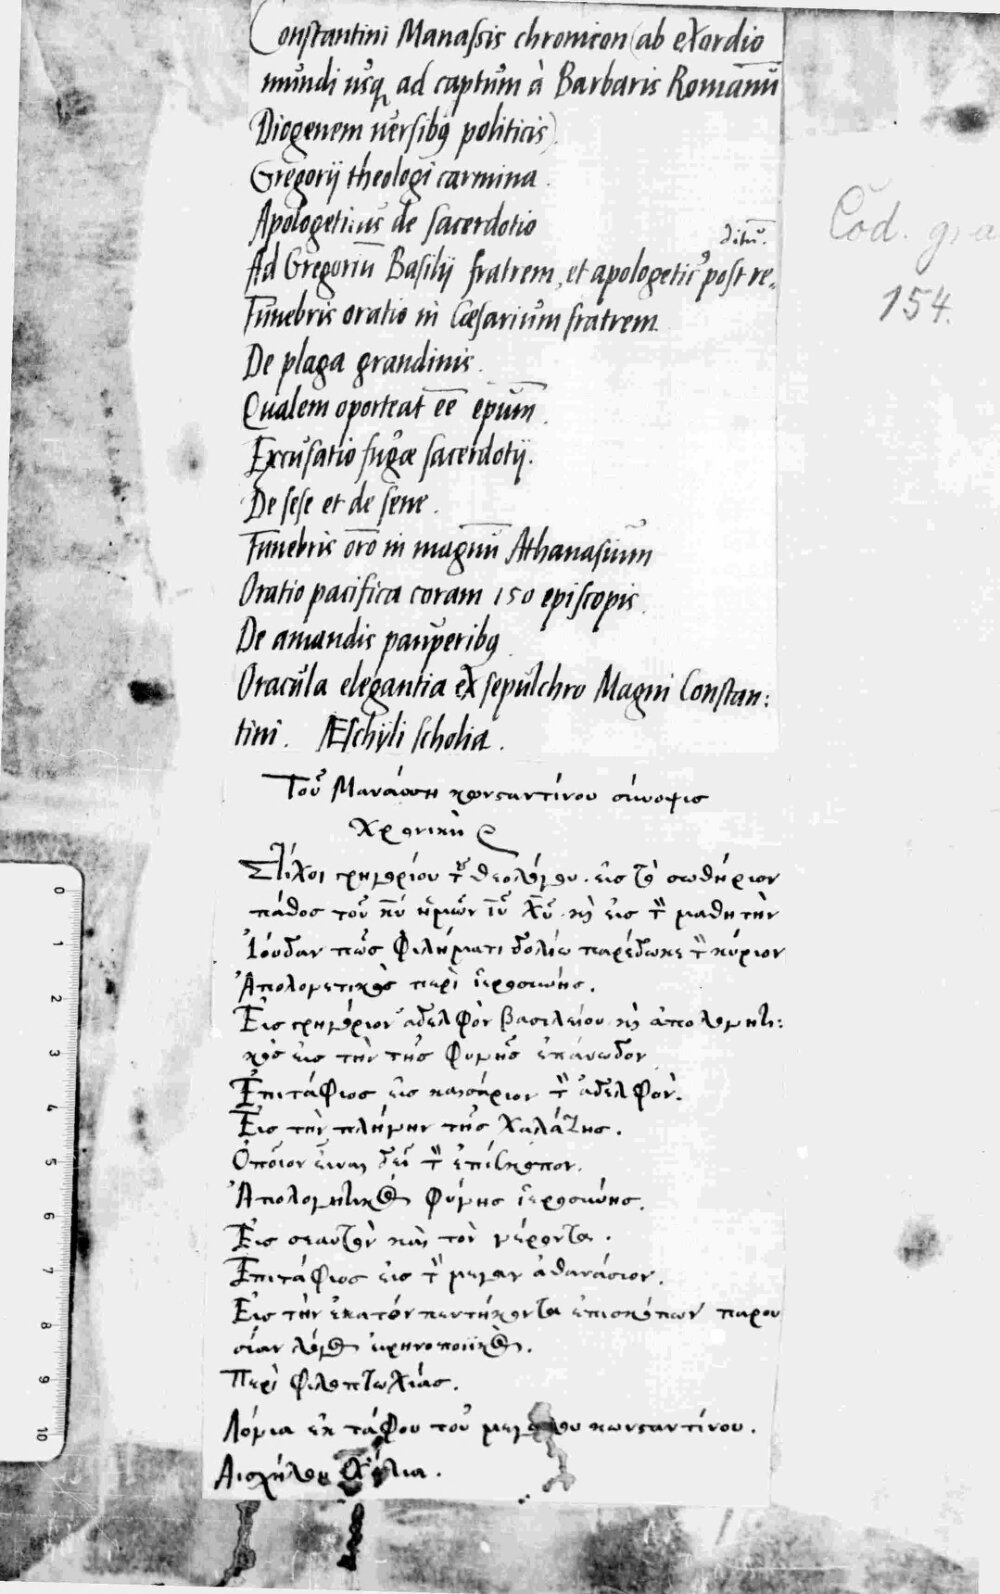 Constantini Manassis chronicon (ab exordio
mundi usq ad captum à Barbaris Romanū
Diogenem versibꝰ politicis)
Gregorij theologi carmina.
Apologeticus de sacerdotio
ditū.
Ad Gregoriū Basilij fratrem, et apologeticꝰ post re-
Funebris oratio in Cæsarium fratrem
De plaga grandinis.
Qualem oporteat ēē ēpum.
Excusatio fugæ sacerdotij.
De sese et de sene.
Funebris orō in magnū Athanasium
Oratio pacifica coram 150 episcopis.
De amandis pauperibꝰ.
Oracula elegantia ex sepulchro Magni Constan:
tini. Æschyli scholia.
Cod. gra
154.
Τοῦ Μανάσση κωνσταντίνου σύνοψις
χρονικὴ
Στίχοι γρηγορίου τοῦ θεολόγου. εἰς τὸ σωθήριον
πάθος τοῦ κ̅υ̅ ἡμῶν ἰ̅υ̅ χ̅υ̅. κὶ εἰς τ̀ μαθητὴν
Ἰούδαν πῶς φιλήματι δολίω παρέδωκε τ̀ κύριον
Ἀπολογετικὸς περὶ ἱεροσύνης.
Εἰς γρηγόριον ἀδελφὸν βασιλείου κὶ ἀπολογητι:
κὸς εἰς τὴν τῆς φυγῆς ἐπάνωδον
Ἐπιτάφιος εἰς καισάριον τ̀ ἀδελφὸν.
Εἰς τὴν πλήγην τῆς χαλάζης.
Ὁποῖον εἶναι δεῖ τ̀ ἐπίσκοπον.
Ἀπολογητικὸς φύγης ἱεροσύνης.
Εἰς σεαυτὸν καὶ τὸν γέροντα.
Ἐπιτάφιος εἰς τ̀ μεγαν ἀθανάσιον.
Εἰς τὴν ἑκατόν πεντήκοντα ἐπισκόπων παρου
σίαν λόγος εἰρηνοποιϊκὸς.
Περὶ φιλοπτωχίας.
Λόγια ἐκ τάφου τοῦ μεγάλου κωνσταντίνου.
Αισχήλου σχόλια.
0
1
2
3
4
5
6
7
8
9
10